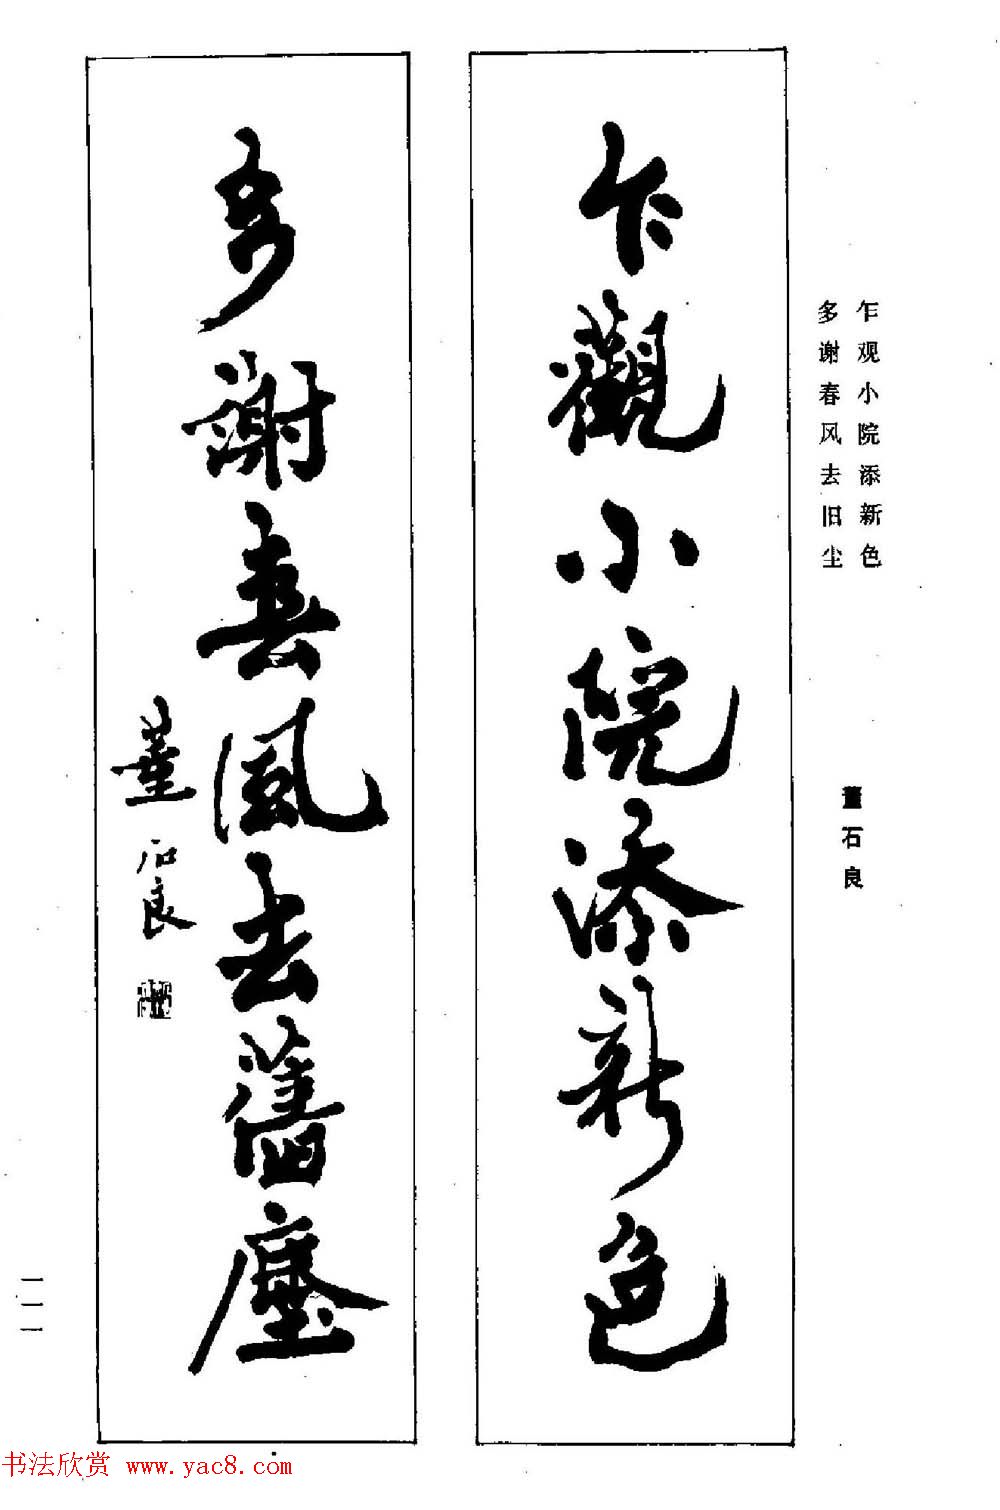 乍观小院添新色
多谢春风去旧尘
董石良
乍觀小院添新色
多謝春風去舊塵
董石良
一一一
书法欣赏 www.yac8.com